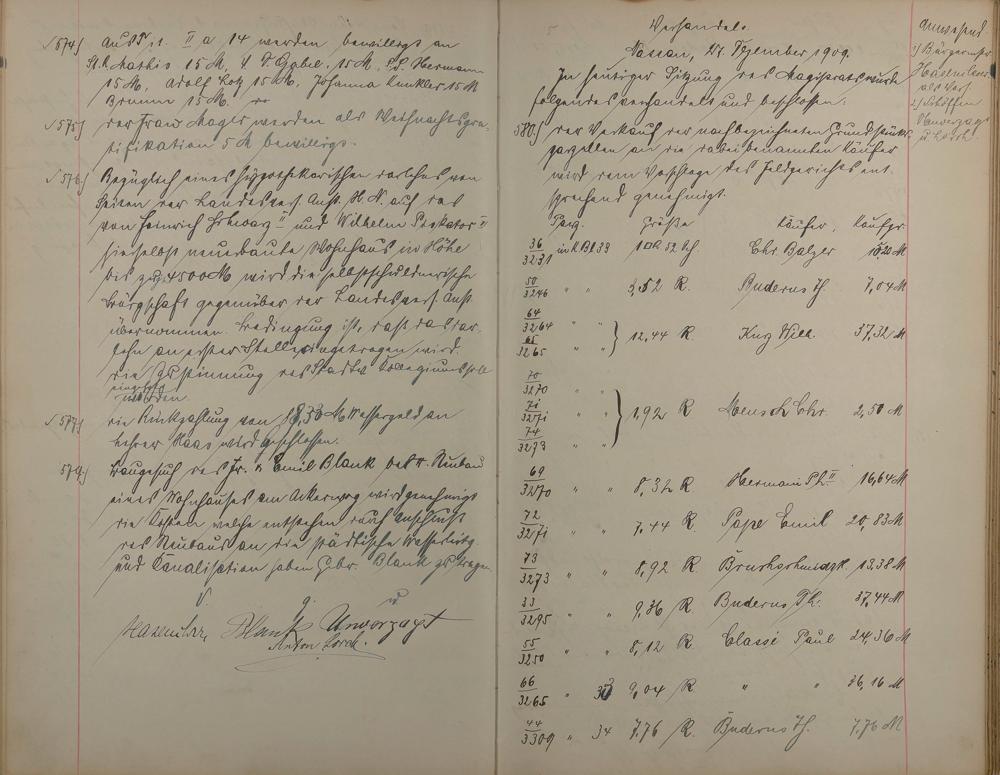 574) Aus Tit. II a 14 werden bewilligt an
St. R. Mathis 15 M, F. Gabel 15 M. Hermann
15 M, Adolf 15 M, Johanna Kunkler 15 M
Brunn 15 M.
575) der Frau Mager werden als Weihnachtsgra-
tifikation 5 M bewilligt.
576) Bezüglich eines hypothekarischen Darlehns von
Seiten der Landesvers. Anst. H. N. auf das
von Heinrich Schwarz II und Wilhelm Piskator II
hierselbst neuerbaute Wohnhaus in Höhe
bis zu 4500 M wird die selbstschuldnerische
Bürgschaft gegenüber der Landesvers. Anst.
übernommen. Bedingung ist, daß das Dar-
lehn an erster Stelle eingetragen wird.
die Zustimmung des Stadtv. Kollegiums soll
eingeholt
werden.
577) die Rückzahlung von 18,30 M Wassergeld an
Lehrer Haas wird beschlossen.
579) Baugesuch des Fr. & Emil Blank betr. Neubau
eines Wohnhauses am wird genehmigt
die Kosten welche entstehen durch Anschluß
des Neubaus an die städtische Wasserltg.
und Kanalisation haben Gebr. Blank zu tragen.
V. g. u.
Hasenclever Blank Unverzagt
Anton Lorch.
Verhandelt
Nassau, 27. Dezember 1909.
In heutiger Sitzung des Magistrats wurde
folgendes verhandelt und beschlossen:
580) der Verkauf der nachbezeichneten Grundstücks-
parzellen an die dabei benannten Käufer
wird dem Vorschlage des Feldgerichts ent-
sprechend genehmigt.
Parz. Größe Käufer, Kaufpr.
36/3231 in K. Bl 33 Chr. Balzer 10,20 M
50/3246 " " 3,52 R. Buderus Th. 7,04 M
64/3264 " "
65/3265 " " } 12,44 R. Kurz Wilh. 37,32 M
70/3270 " "
71/3271 " " } 1,92 R Mensch Chr. 2,50 M
74/3273 " "
69/3270 " " 8,32 R Hermani Ph. II 16,64 M
72/3271 " " 7,44 R. Pape Emil 20,83 M
73/3273 " " 8,92 R. 13,38 M
33/3295 " " 9,36 R. Buderus Th. 37,44 M
55/3250 " " 8,12 R. Classé Paul 24,36 M
66/3265 " 33 9,04 R. " " 36,16 M
44/3309 " 34 7,76 R. Buderus Th. 7,76 M
Anwesend
1) Bürgermstr
Hasenclever
als Vors.
2) Schöffen
Unverzagt
u. Lorch